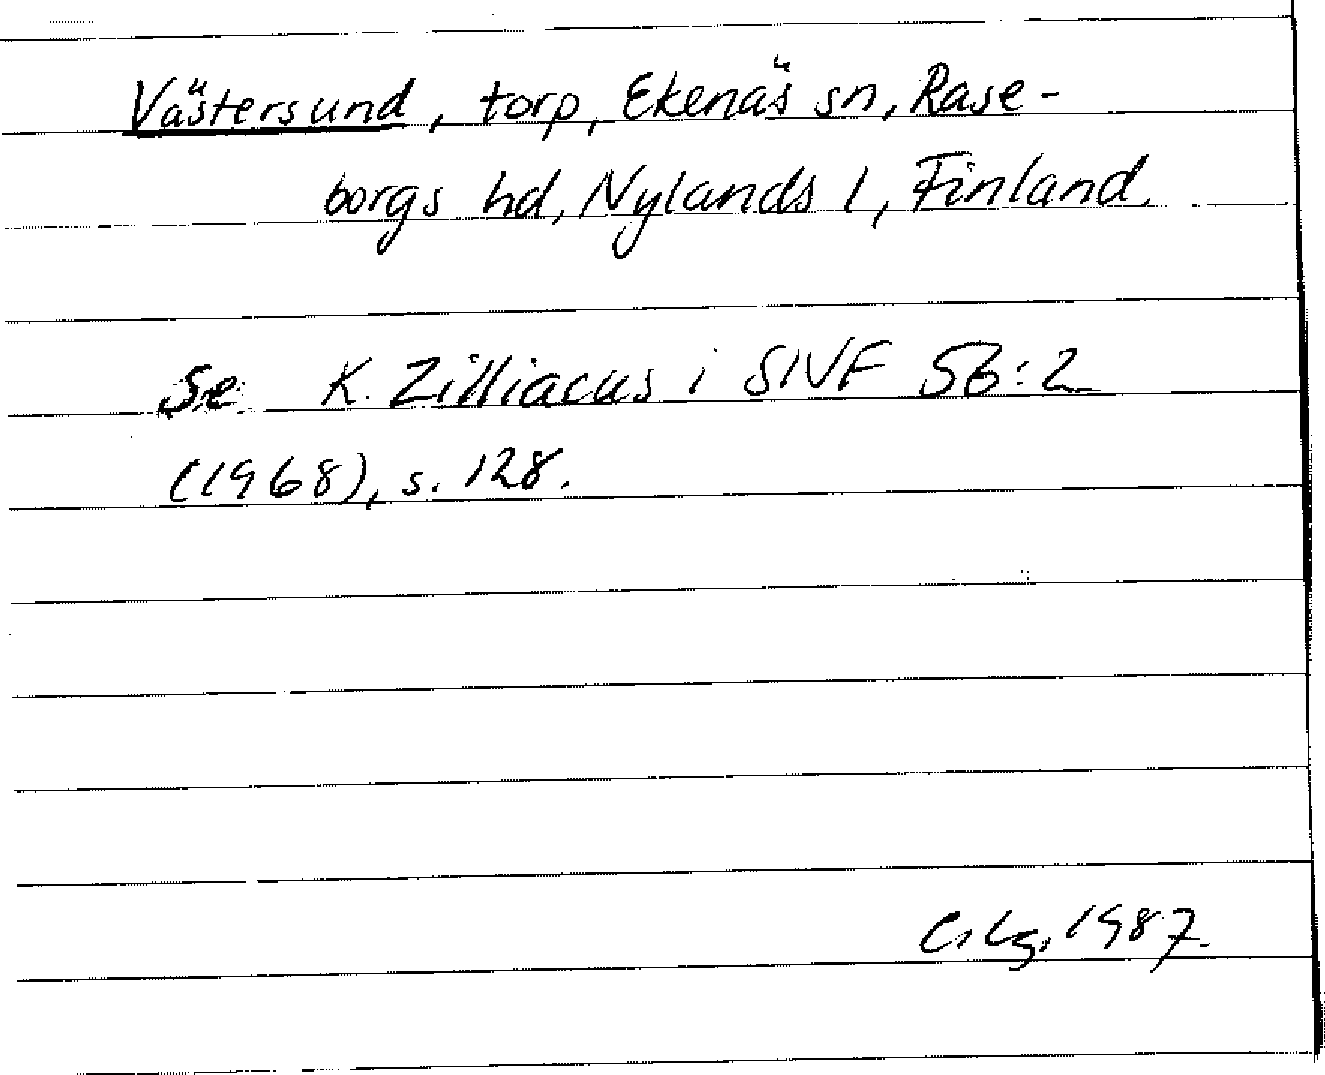 Västersund, torp, Ekenäs sn, Rase-
borgs hd, Nylands l, Finland.
Se K. Zilliacus i SNF 56:2
(1968), s. 128.
1987.